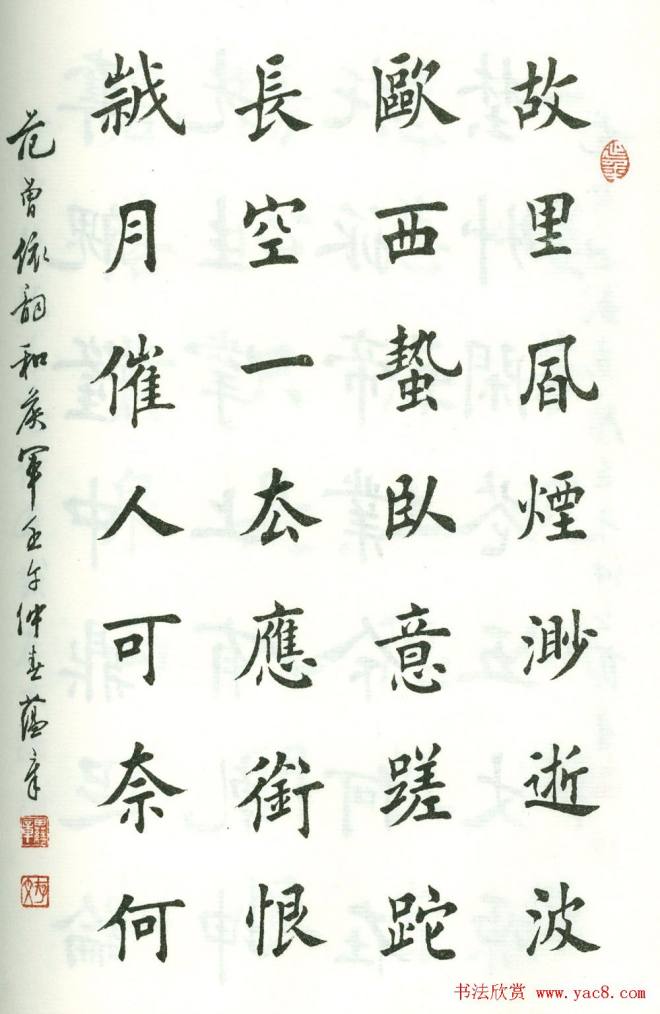 故里凬煙渺逝波
歐西蟄臥意蹉跎
長空一厺應銜恨
歲月催人可奈何
范曾依韵和軍壬午仲春蕴章
书法欣赏 www.yac8.com